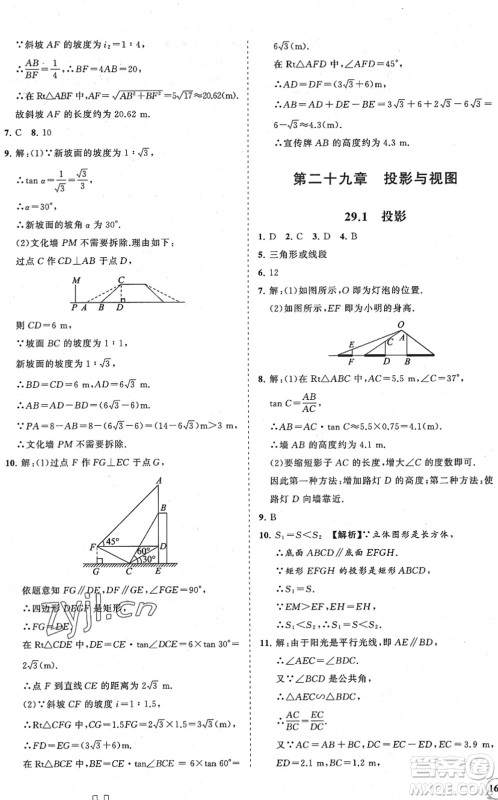 ∵斜坡 AF 的坡度为 i=1∶4,
∴AB/BF=1/4,∴BF=4AB=20 m.
∴在 Rt△ABF 中,AF=√(AB²+BF²)=5√17≈20.62(m).
故斜坡 AF 的长度约为 20.62 m.
7. C 8. 10
9. 解:(1)∵新坡面的坡度为 1∶√3,
∴tan α=1/√3=√3/3,
∴α=30°.
∴新坡面的坡角为 30°.
(2)文化墙 PM 不需要拆除.
过点 C 作 CD⊥AB 于点 D,
M C
P A B D
则 CD=6 m,
∵坡面 BC 的坡度为 1∶1,
新坡面的坡度为 1∶√3,
∴BD=CD=6 m,AD=6√3 m,
∴AB=AD-BD=(6√3-6)m.
∵PA=8-AB=8-(6√3-6)=(14-6√3)m>0,
∴文化墙 PM 不需要拆除.
10. 解:(1)过点 F 作 FG⊥EC 于点 G,
A
B
F 45° D
60°
30°
G C E
依题意知 FG∥DE,∠FGE=90°,
∴四边形 DEGF 是矩形,
∴FG=DE.
在 Rt△CDE 中,DE=CE·tan∠DCE=6×tan 30°=
2√3(m).
∴点 F 到直线 CE 的距离为 2√3 m.
(2)∵斜坡 CF 的坡度为 i=1∶1.5,
∴在 Rt△CFG 中,CG=1.5FG=2√3×1.5=
3√3(m),
∴FD=EG=(3√3+6)m.
在 Rt△BCE 中,BE=CE·tan∠BCE=6×tan 60°=
6√3(m).
∵在 Rt△ADF 中,∠AFD=45°,
∴AD=DF=(3√3+6)m.
∴AB=AD+DE-BE=3√3+6+2√3-
6√3=6-√3≈4.3(m).
∴宣传牌 AB 的高度约为 4.3 m.
第二十九章 投影与视图
29.1 投影
1. D 2. C 3. D 4. B
5. 三角形或线段
6. 12
7. 解:(1)如图所示,点 O 为灯泡的位置.
(2)如图所示,EF 即为小明的身高.
O
A
F C
E D B
8. 解:(1)在 Rt△ABC 中,AC=5.5 m,∠C=37°,
tan C=AB/AC,
∴墙 AB 的高度约为 4.1 m.
(2)要缩短影子 AC 的长度,方法有两种:
第一种方法:增加路灯 D 的高度;第二种方法:使
路灯 D 向墙靠近.
9. B
10. S₁=S<S₂ 【解析】∵立体图形是长方体,
∴底面 ABCD∥底面 EFGH.
∵矩形 EFGH 的投影是矩形 ABCD,
∴S₁=S.
∵EM>EF,EH=EH,
∴S<S₂,∴S₁=S<S₂.
11. 解:由于阳光是平行光线,即 AE∥BD,
∴∠AEC=∠BDC.
又∵∠BDC 是公共角,
∴△AEC∽△BDC,
∴AC/BC=EC/DC.
又∵AC=AB+BC,DC=EC-ED,EC=3.9 m,
ED=2.1 m,BC=1.2 m,
16